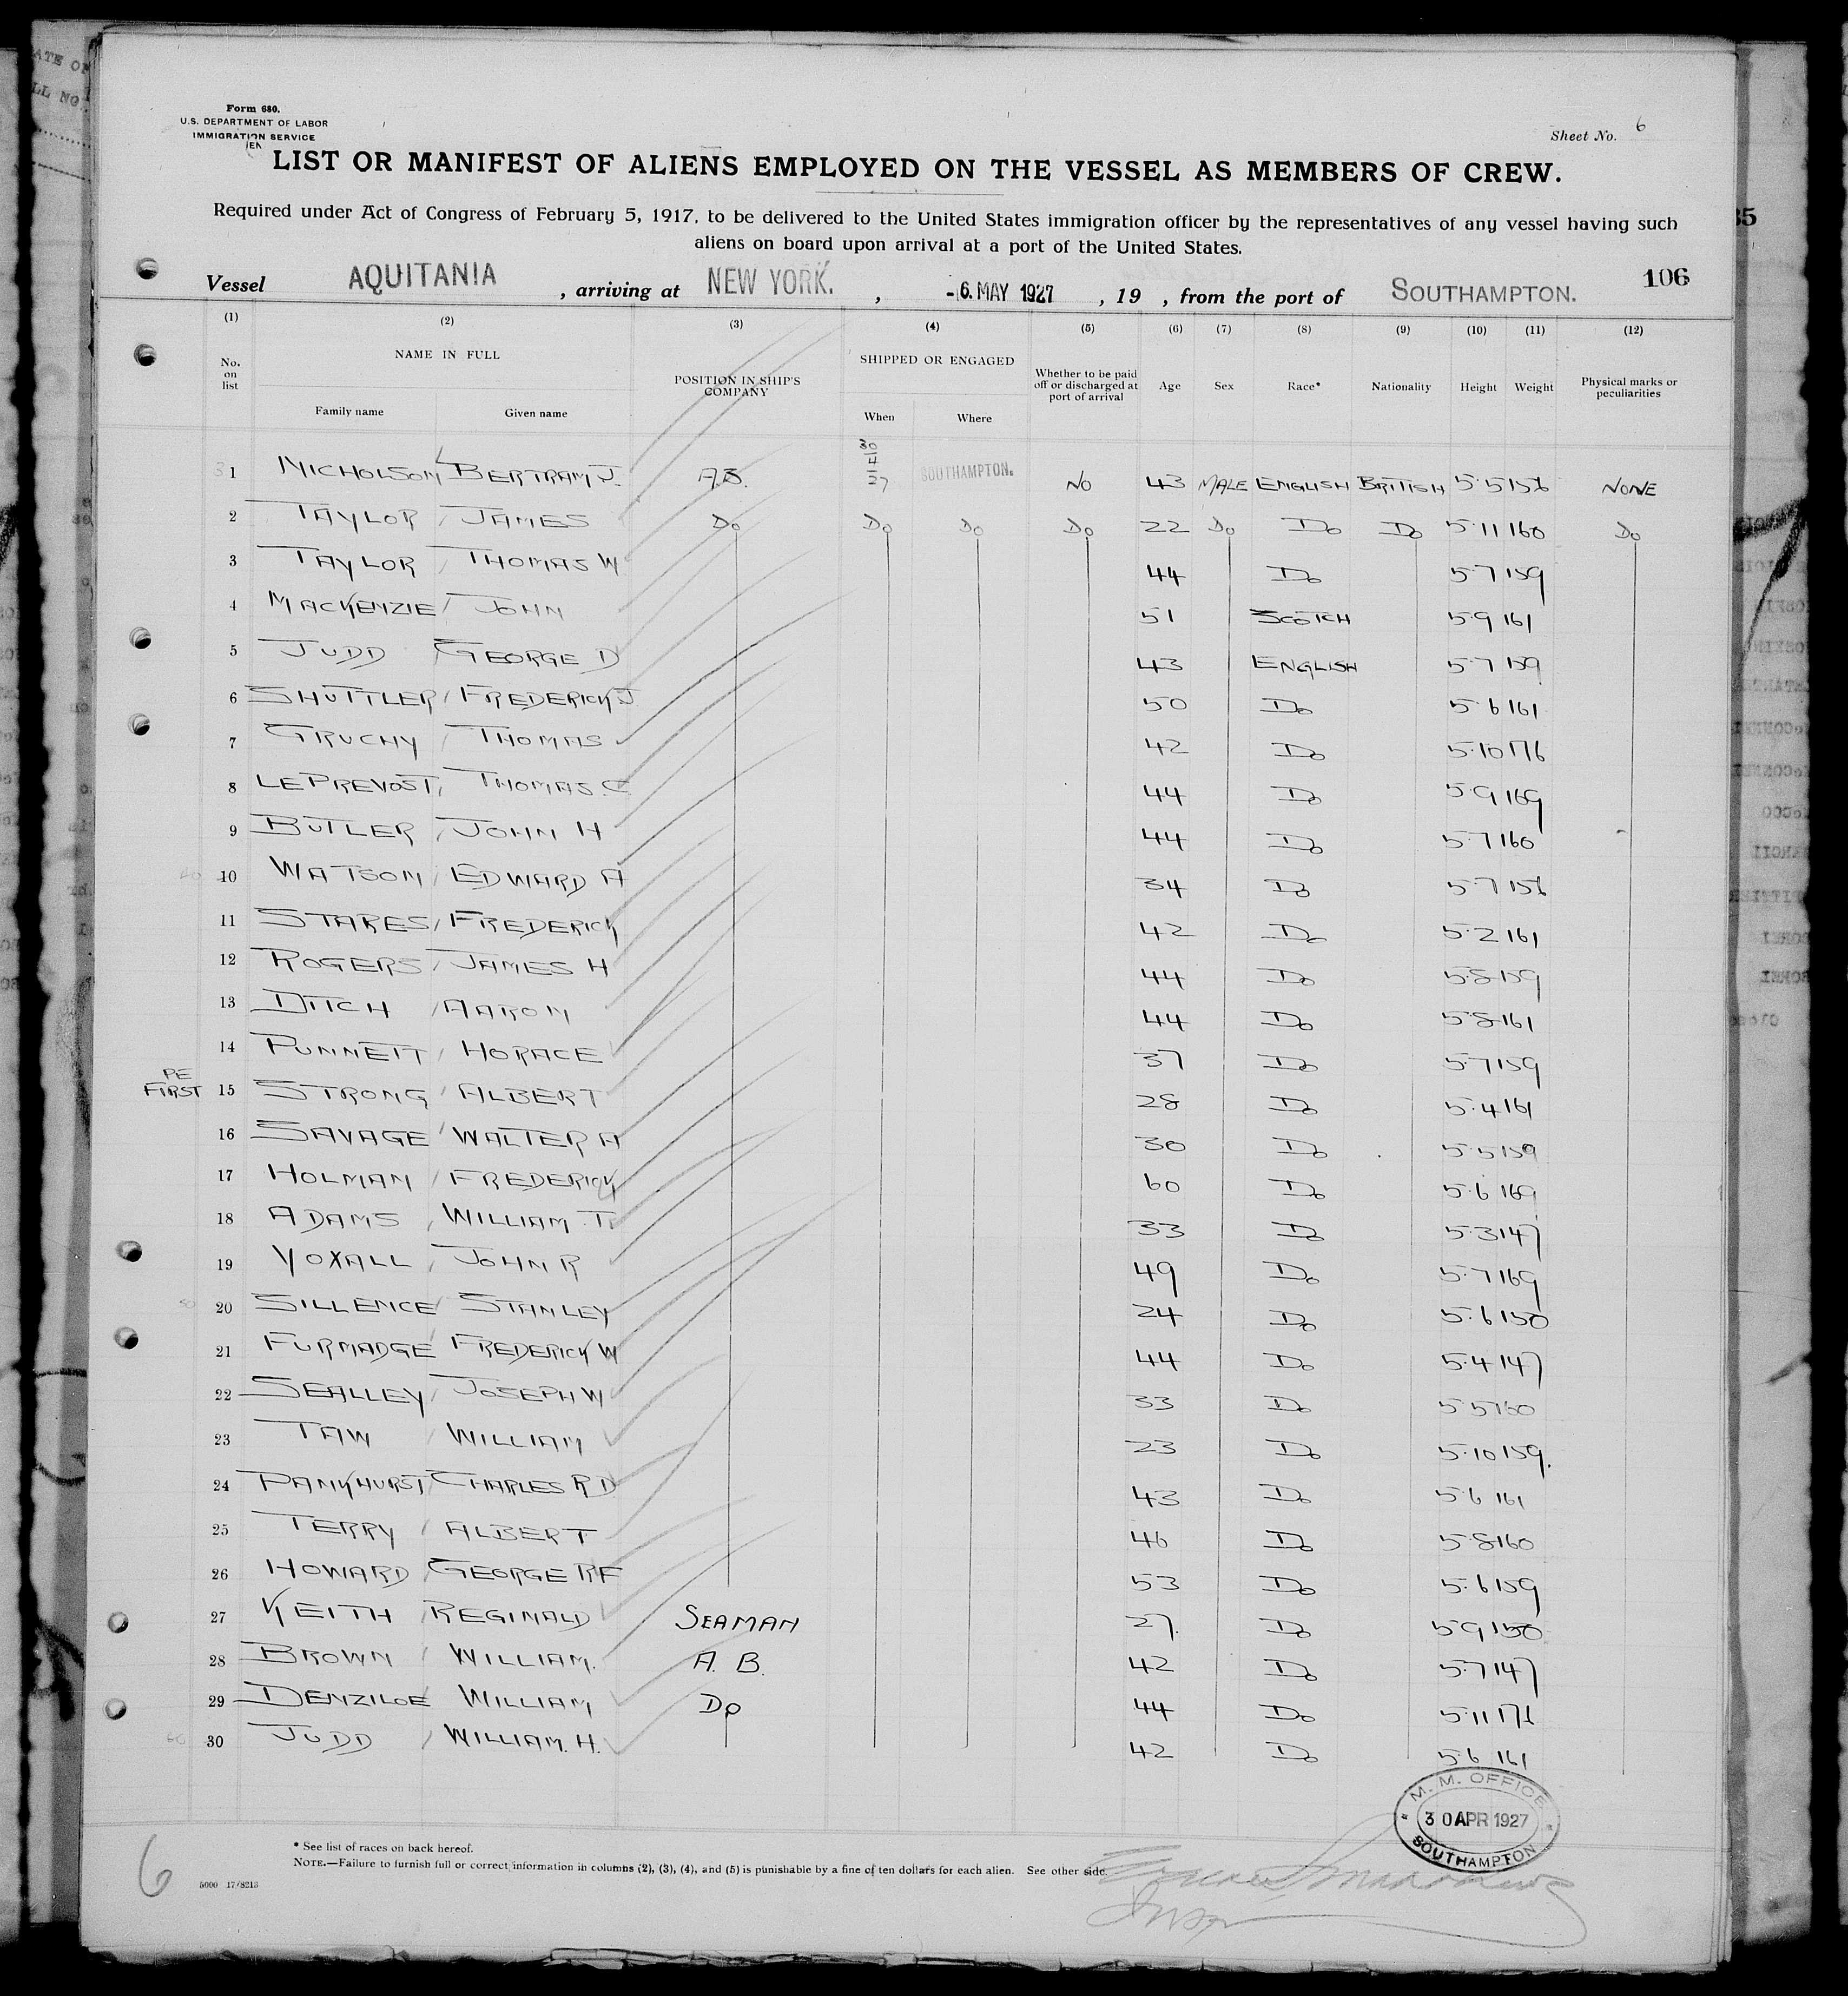 Form 680.
U.S. DEPARTMENT OF LABOR
IMMIGRATION SERVICE
Sheet No. 6
LIST OR MANIFEST OF ALIENS EMPLOYED ON THE VESSEL AS MEMBERS OF CREW.
Required under Act of Congress of February 5, 1917, to be delivered to the United States immigration officer by the representatives of any vessel having such
aliens on board upon arrival at a port of the United States.
106
Vessel AQUITANIA, arriving at NEW YORK., -6. MAY 1927, 19 , from the port of SOUTHAMPTON.
(1) (2) (3) (4) (5) (6) (7) (8) (9) (10) (11) (12)
No. on list NAME IN FULL Family name Given name POSITION IN SHIP'S COMPANY SHIPPED OR ENGAGED When Where Whether to be paid off or discharged at port of arrival Age Sex Race* Nationality Height Weight Physical marks or peculiarities
1 NICHOLSON BERTRAM J. A.B. 30/4/27 SOUTHAMPTON. NO 43 MALE ENGLISH BRITISH 5·5 NONE
2 TAYLOR JAMES Do Do Do Do 22 Do Do Do 5·11 160 Do
3 TAYLOR THOMAS W 44 Do 5·7 159
4 MACKENZIE JOHN 51 SCOTCH 5·9 161
5 JUDD GEORGE D 43 ENGLISH 5·7 159
6 SHUTTLER FREDERICK J 50 Do 5·6 161
7 GRUCHY THOMAS 42 Do 5·10 176
8 LEPREVOST THOMAS.C 44 Do 5·9 169
9 BUTLER JOHN H 44 Do 5·7 160
10 WATSON EDWARD A 34 Do 5·7
11 STARES FREDERICK 42 Do 5·2 161
12 ROGERS JAMES H 44 Do 5·8 159
13 DITCH AARON 44 Do 5·8 161
14 PUNNETT HORACE 37 Do 5·7 159
PE
FIRST 15 STRONG ALBERT 28 Do 5·4 161
16 SAVAGE WALTER A 30 Do 5·5 159
17 HOLMAN FREDERICK 60 Do 5·6 169
18 ADAMS WILLIAM T. 33 Do 5·3 147
19 VOXALL JOHN R 49 Do 5·7 169
20 SILLENCE STANLEY 24 Do 5·6 150
21 FURMADGE FREDERICK W 44 Do 5·4 147
22 SEALLEY JOSEPH W 33 Do 5·5 160
23 TAW WILLIAM 23 Do 5·10 159.
24 PANKHURST CHARLES R D 43 Do 5·6 161
25 TERRY ALBERT 46 Do 5·8 160
26 HOWARD GEORGE R F 53 Do 5·6 159
27 KEITH REGINALD SEAMAN 27. Do 5·9 150
28 BROWN WILLIAM. A. B. 42 Do 5·7 147
29 DENZILOE WILLIAM Do 44 Do 5·11
30 JUDD WILLIAM. H. 42 Do 5·6 161
M. M. OFFICE
30 APR 1927
SOUTHAMPTON
* See list of races on back hereof.
NOTE.—Failure to furnish full or correct information in columns (2), (3), (4), and (5) is punishable by a fine of ten dollars for each alien. See other side.
5000 17/8213
6